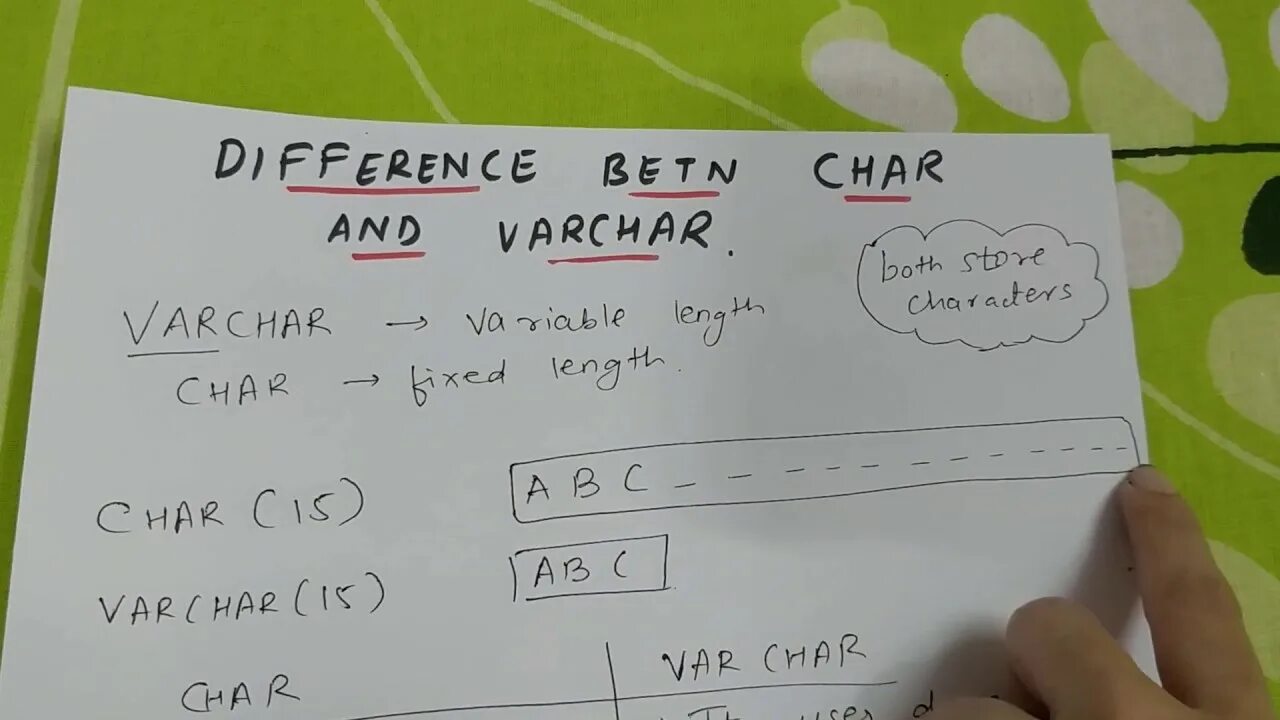 DIFFERENCE BETN CHAR
AND VARCHAR.
both store
characters
VARCHAR → variable length
CHAR → fixed length.
CHAR (15)
A B C _ _ _ _ _ _ _ _ _ _ _ _
VARCHAR (15)
ABC
CHAR
VARCHAR
It uses